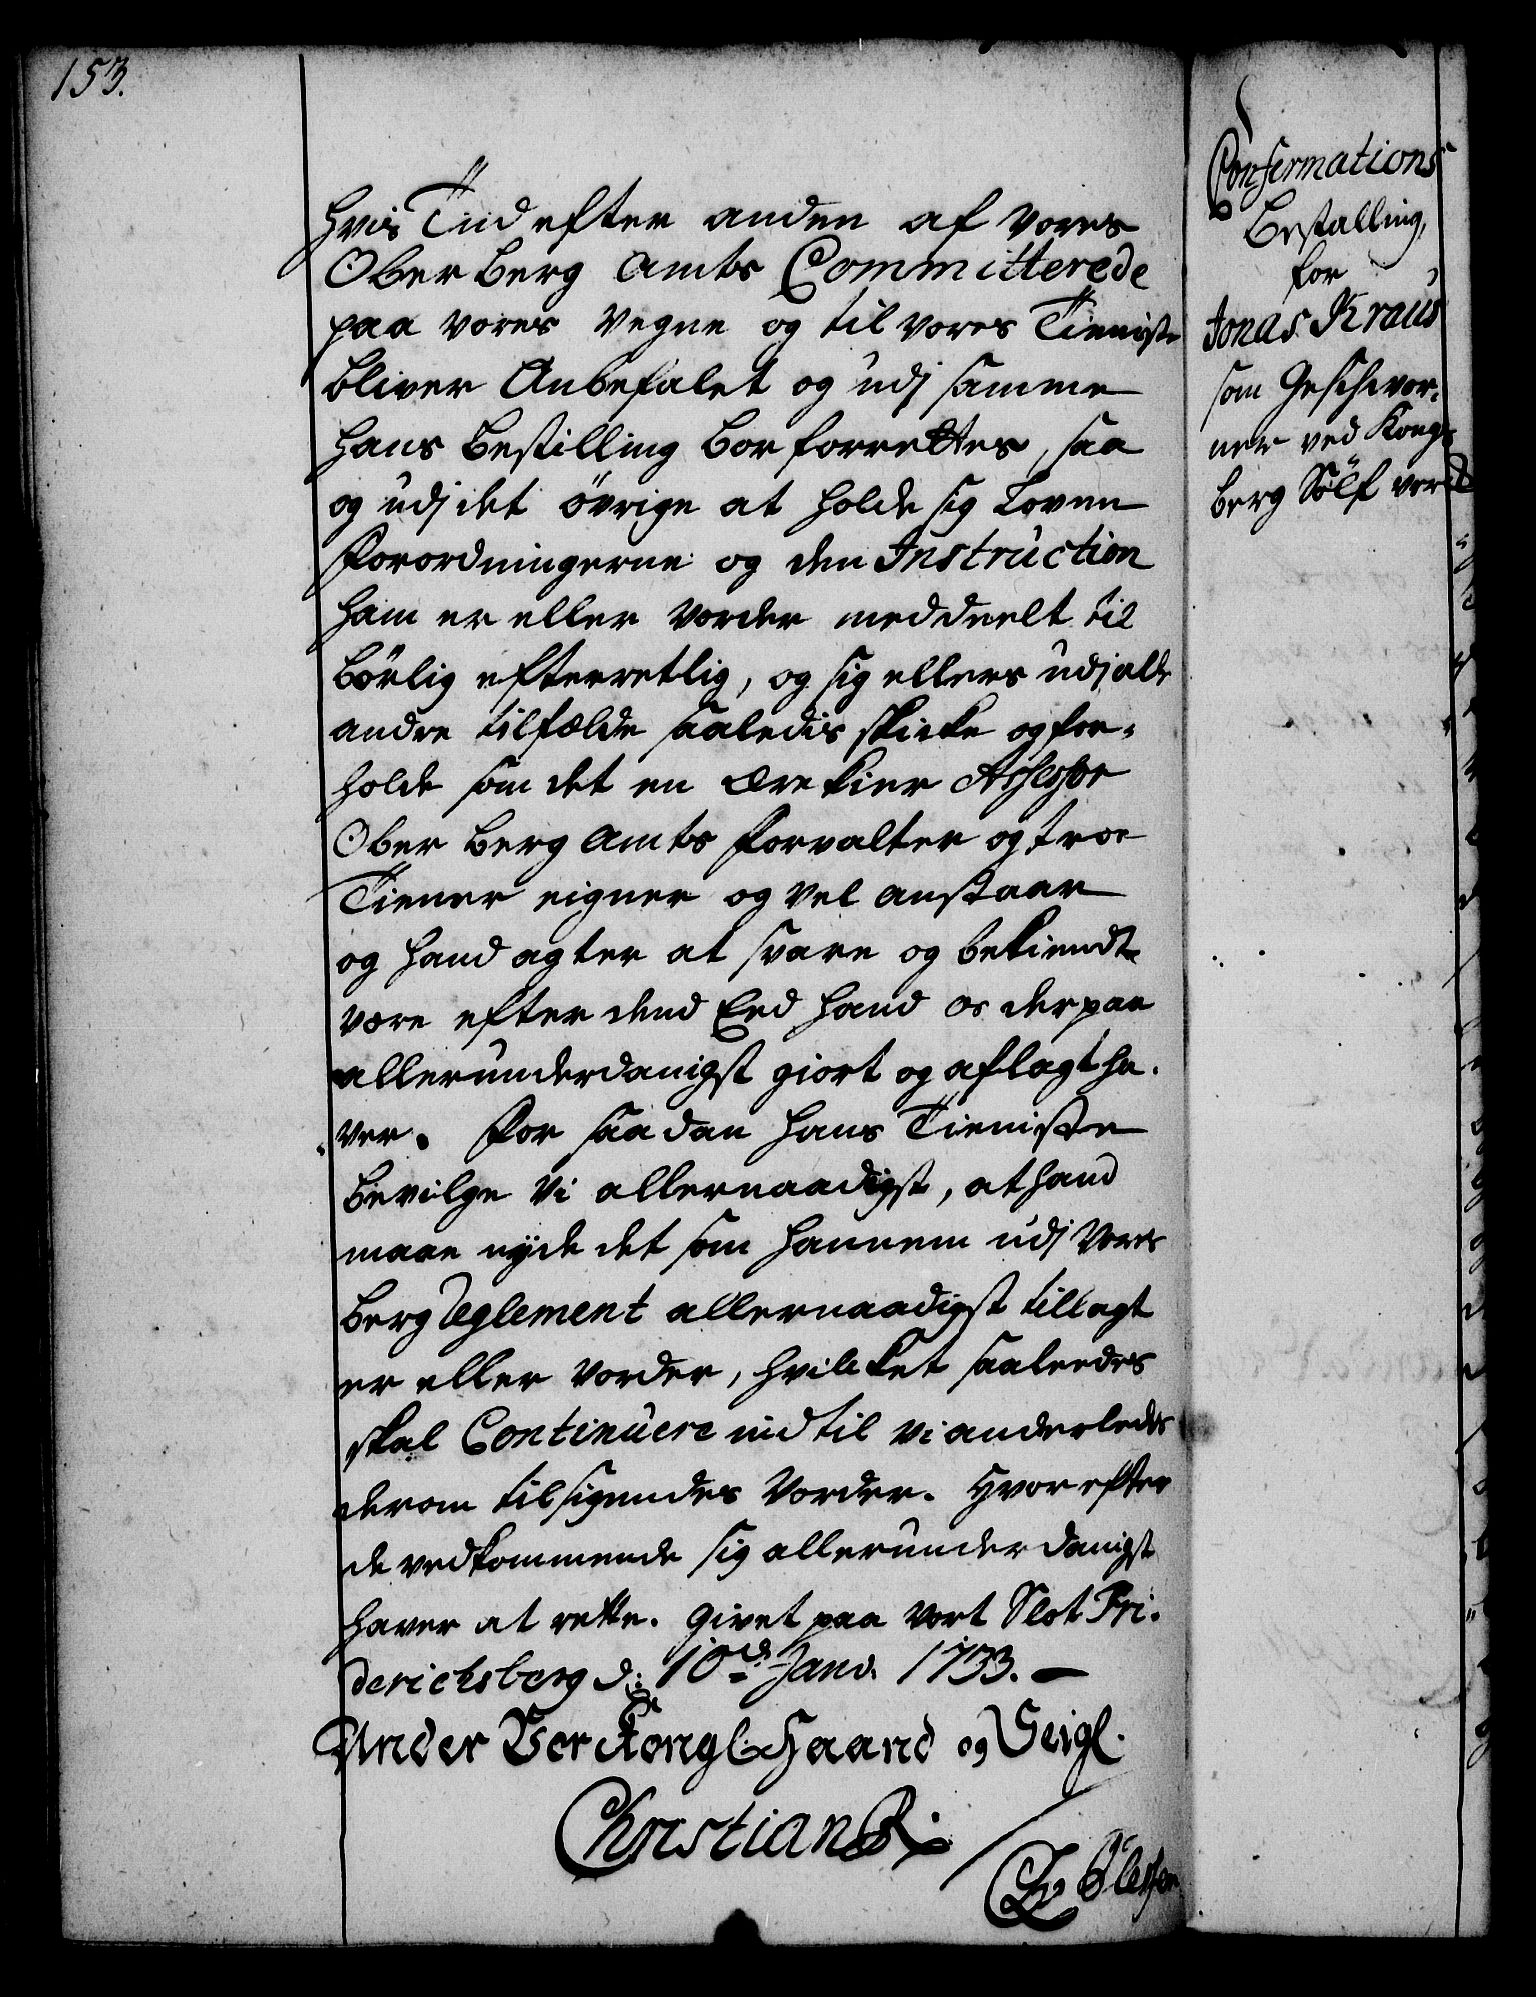 153.
hvis Tiid efter anden af vores
Ober Berg Amts Committerede
paa vores vegne og til vores Tieniste
bliver Anbefalet og udj samme
hans bestilling bør forrettes, saa
og udj det övrige at holde sig Loven
Forordningerne og den Instruction
ham er eller vorder meddeelt til
börlig efterretlig, og sig ellers udj alle
andre tilfælde saaledis skicke og for-
holde som det en ærekier Assessor
Ober Berg Amts Forvalter og troe
Tiener eigner og vel anstaar
og hand agter at svare og bekiendt
være efter dend Eed hand os derpaa
allerunderdanigst giort og aflagt ha-
ver. For saadan hans Tieniste
bevilge Vi allernaadigst, at hand
maae nyde det som hannem udj Vores
Berg Reglement allernaadigst tillagt
er eller vorder, hvilcket saaleedes
skal Continuere indtil vi anderledes
derom tilsigendes vorder. Hvorefter
de vedkommende sig allerunderdanigst
haver at rette. Givet paa vort Slot Fri-
derichsberg d: 10de Janv. 1733.
Under Vor Kongl. Haand og Seigl.
Christian R.
Plessen
Confirmations
Bestalling,
for
Jonas Kraus
som Geschwor-
ner ved Kongs
berg Sölf verck